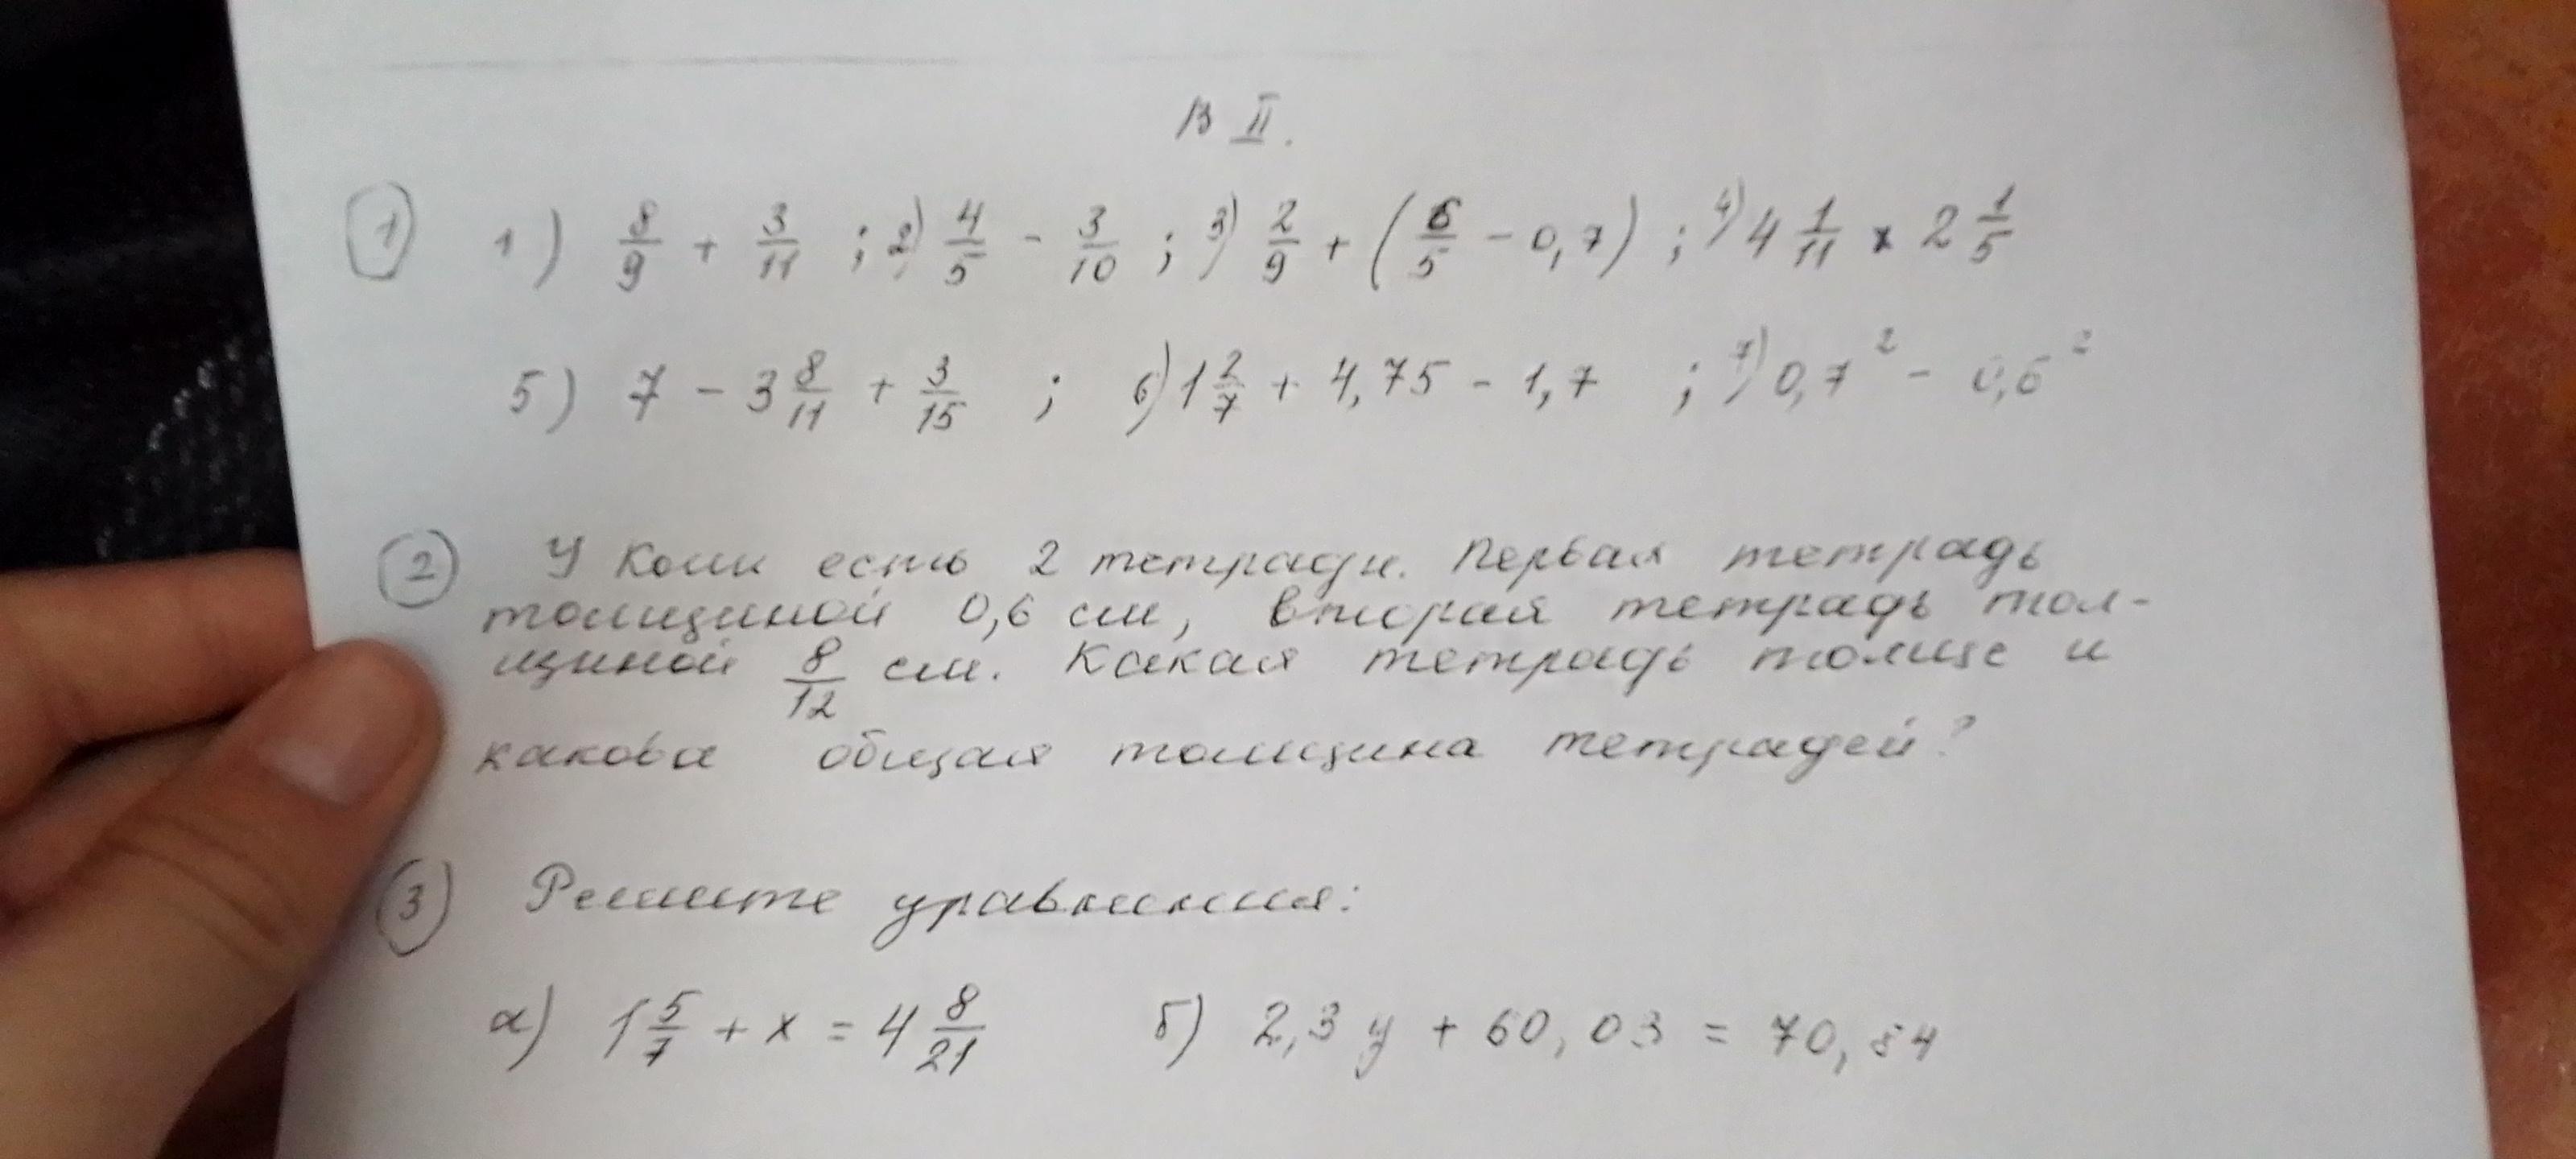 В II.
① 1) 8/9 + 3/11 ; 2) 4/5 - 3/10 ; 3) 2/9 + (6/5 - 0,7) ; 4) 4 1/11 × 2 1/5
5) 7 - 3 8/11 + 3/15 ; 6) 1 2/7 + 4,75 - 1,7 ; 7) 0,7² - 0,6²
② У Коли есть 2 тетради. Первая тетрадь
толщиной 0,6 см, вторая тетрадь тол-
щиной 8/12 см. Какая тетрадь толще и
какова общая толщина тетрадей?
③ Решите уравнения:
а) 1 5/7 + x = 4 8/21 б) 2,3 y + 60,03 = 70,84